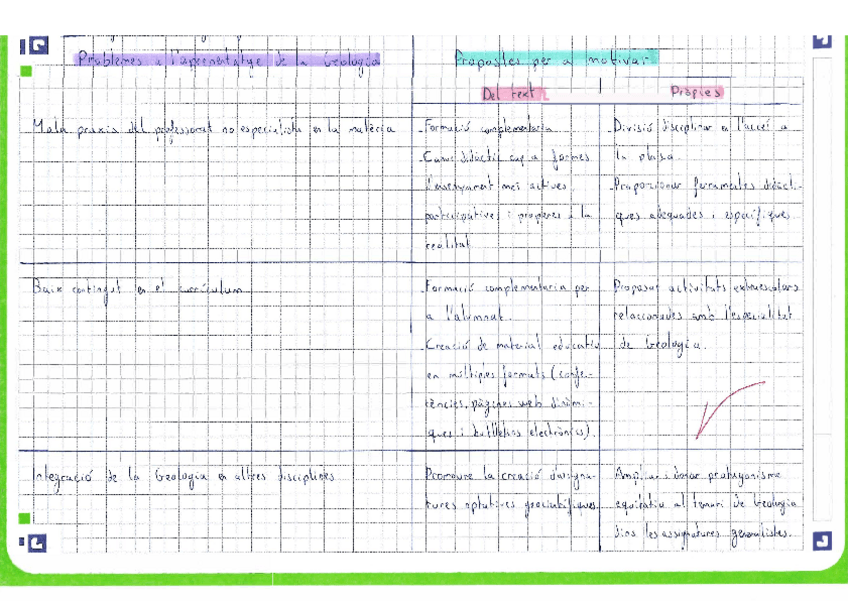 Problemes a l'aprenentatge de la Geologia
Propostes per a motivar
Del text
Pròpies
Mala praxis del professorat no especialista en la matèria
-Formació complementaria
-Canvi didàctic cap a formes
l'ensenyament més actives,
participatives i properes a la
realitat
-Divisió disciplinar en l'accés a
la plaça.
-Proporcionar ferramentes didàcti-
ques adequades i específiques
Baix contingut en el currículum
-Formació complementaria per
a l'alumnat.
-Creació de material educatiu
en múltiples formats (confe-
rències, pàgines web dinàmi-
ques i butlletins electrònics).
Proposar activitats extraescolars
relaccionades amb l'especialitat
de Geologia.
Integració de la Geologia en altres disciplines
Promoure la creació d'assigna-
tures optatives geocientífiques
Ampliar i donar protagonisme
equitatiu al temari de Geologia
dins les assignatures generalistes.